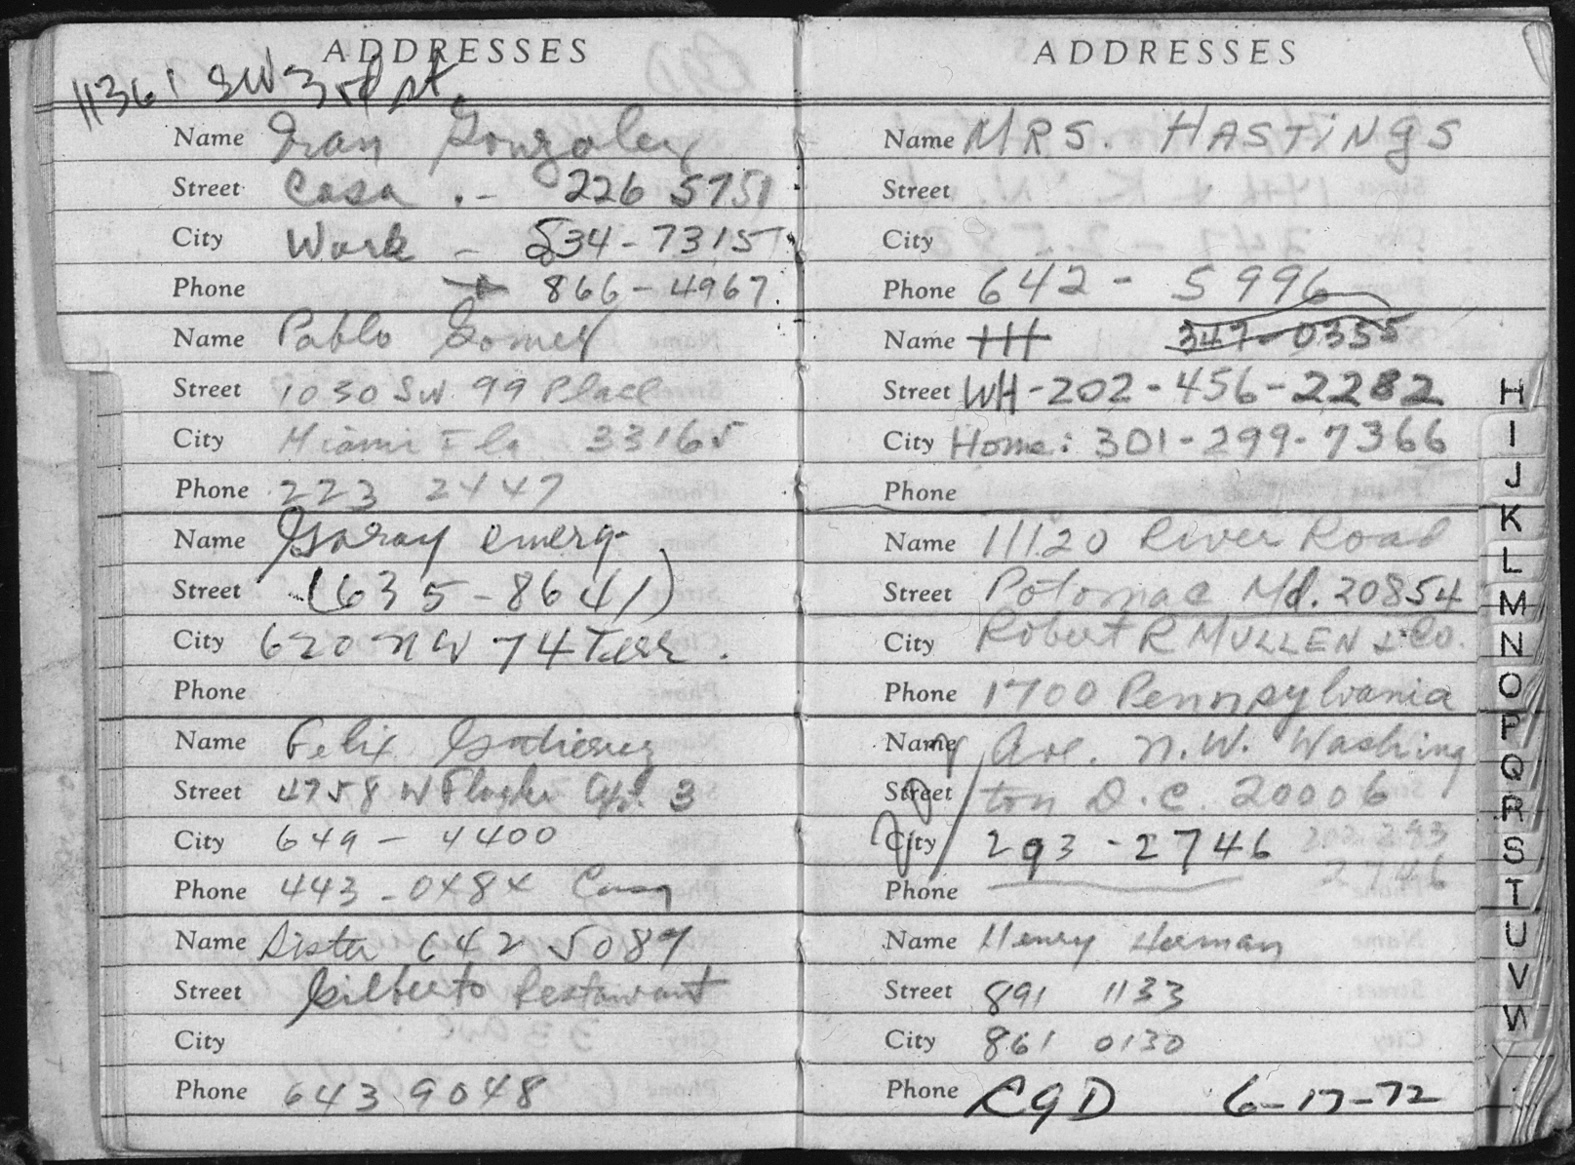 ADDRESSES
11361 SW 3rd st.
Name Fran Gonzalez
Street Casa .- 226 5751
City Work - 534-7315
Phone 866-4967
Name Pablo Gomez
Street 1030 SW 99 Place
City Miami Fla 33165
Phone 223 2447
Name Garay emerg
Street (635-8641)
City 620 NW 74 Terr.
Phone
Name Felix Gutierrez
Street 4758 W Flagler Apt. 3
City 649-4400
Phone 443-0484
Name Sister 642 5089
Street Gilberto Restaurant
City
Phone 643 9048
ADDRESSES
Name MRS. HASTINGS
Street
City
Phone 642 - 5996
Name HH 347-0355
Street WH-202-456-2282
City Home: 301-299-7366
Phone
Name 11120 River Road
Street Potomac Md. 20854
City Robert R MULLEN & Co.
Phone 1700 Pennsylvania
Name Ave. N.W. Washing
Street ton D.C. 20006
City 293-2746 202 293
Phone 2746
Name Henry Herman
Street 891 1133
City 861 0130
Phone RGD 6-17-72
H
I
J
K
L
M
N
O
P
Q
R
S
T
U
V
W
Y